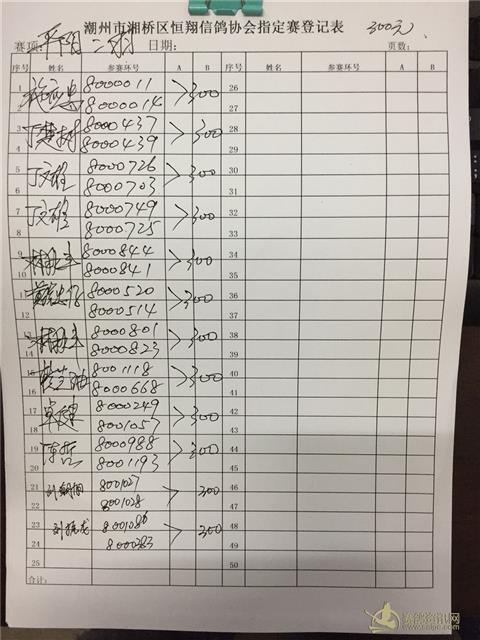 潮州市湘桥区恒翔信鸽协会指定赛登记表 300元
赛项: 平阳二羽 日期: 页数:
序号 姓名 参赛环号 A B 序号 姓名 参赛环号 A B
1 8000011 >300 26
2 8000014 27
3 8000437 >300 28
4 8000439 29
5 丁文雄 8000726 >300 30
6 8000703 31
7 丁文雄 8000749 >300 32
8 8000725 33
9 8000844 >300 34
10 8000841 35
11 8000520 >300 36
12 8000514 37
13 8000801 >300 38
14 8000823 39
15 8001118 >300 40
16 8000668 41
17 8000249 >300 42
18 8001057 43
19 陈哲 8000988 >300 44
20 8001193 45
21 8001027 >300 46
22 8001028 47
23 8001086 >300 48
24 8000383 49
25 50
合计: